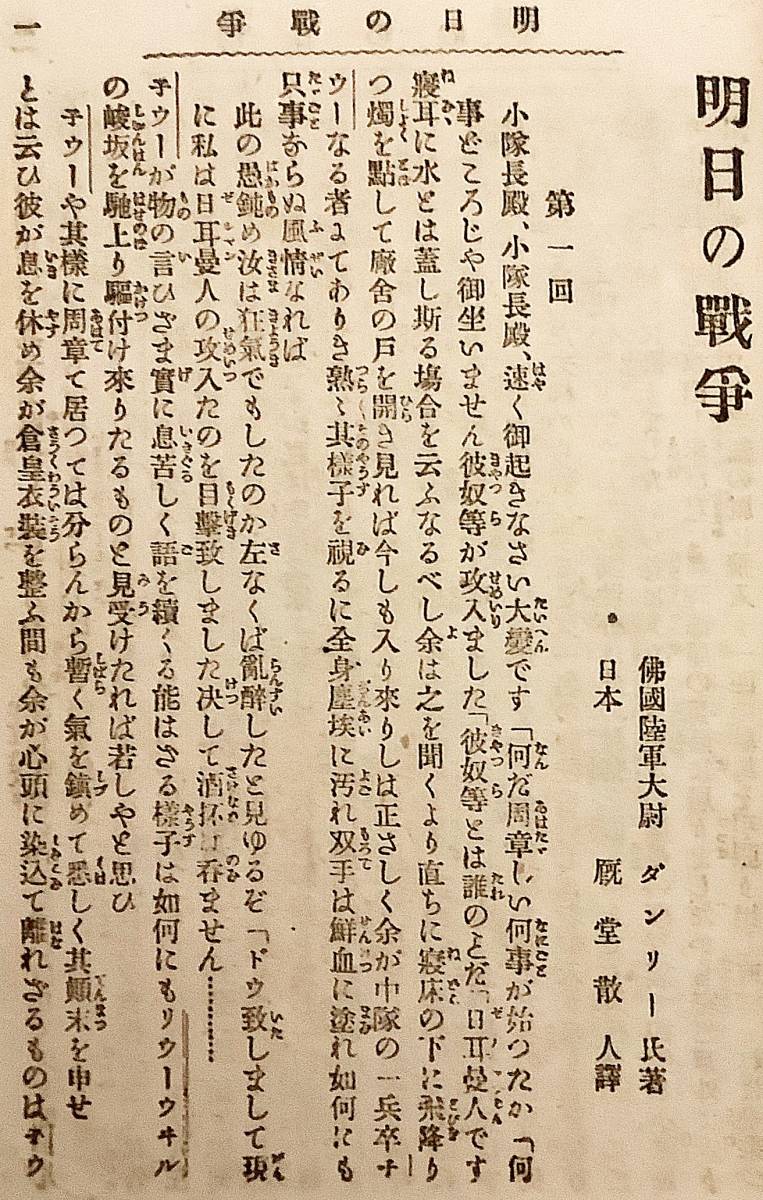 明日の戰爭
一
明日の戰爭
佛國陸軍大尉 ダンリー氏著
日本 厩堂散人譯
第一回
小隊長殿、小隊長殿、速く御起きなさい大變です「何だ周章しい何事が始つたか「何
事どころじや御坐いません彼奴等が攻入ました「彼奴等とは誰のとだ「日耳曼人です
寢耳に水とは蓋し斯る塲合を云ふなるべし余は之を聞くより直ちに寢床の下に飛降り
つ燭を點して廠舍の戸を開き見れば今しも入り來りしは正さしく余が中隊の一兵卒チ
ウーなる者にてありき熟〻其樣子を視るに全身塵埃に汚れ双手は鮮血に塗れ如何にも
只事ならぬ風情なれば
此の愚鈍め汝は狂氣でもしたのか左なくば亂醉したと見ゆるぞ「ドウ致しまして現
に私は日耳曼人の攻入たのを目擊致しました决して酒抔は呑ません…………
チウーが物の言ひざま實に息苦しく語を續くる能はざる樣子は如何にもリウーウヰル
の峻坂を馳上り驅付け來りたるものと見受けたれば若しやと思ひ
チウーや其樣に周章て居つては分らんから暫く氣を鎭めて悉しく其顚末を申せ
とは云ひ彼が息を休め余が倉皇衣裝を整ふ間も余が心頭に染込て離れざるものはチウ